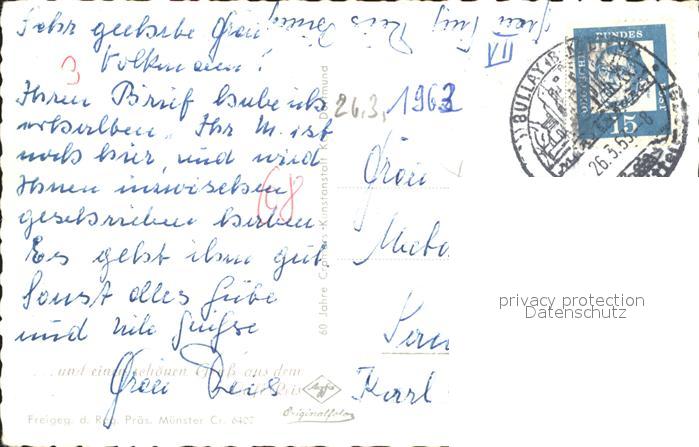 Sehr geehrte Frau
Volkmann!
3
Ihren Brief habe ich
erhalten. Ihr M. ist
noch hier, und wird
Ihnen inzwischen
geschrieben haben.
Es geht ihm gut
Sonst alles Gute
und viele Grüsse
Frau Reis
68
26.3. 1963
VII
Frau
Karl
60 Jahre Cramers Kunstanstalt KG. Dortmund
... und einen schönen Gruß aus dem
Freigeg. d. Reg. Präs. Münster Cr. 6407
Agfa
Originalfoto
DEUTSCHE BUNDESPOST
15
BULLAY
26.3.63-8
privacy protection
Datenschutz